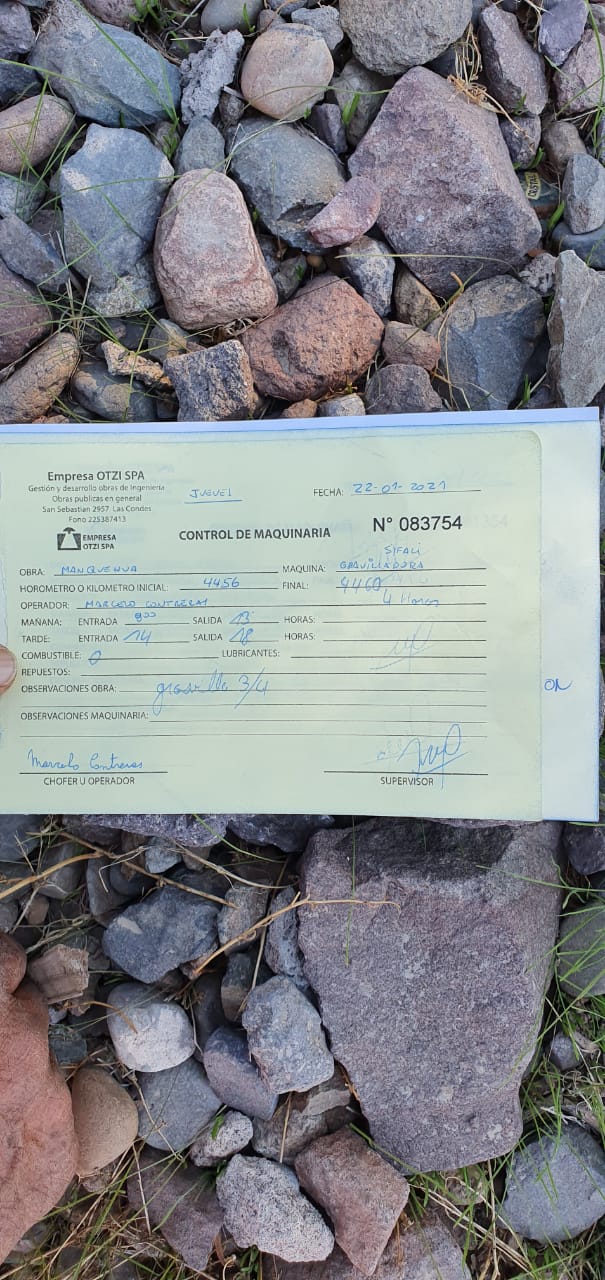 Empresa OTZI SPA
Gestión y desarrollo obras de Ingenieria
Obras publicas en general
San Sebastian 2957 Las Condes
Fono 225387413
JUEVES
FECHA: 22-01-2021
EMPRESA OTZI SPA
CONTROL DE MAQUINARIA
N° 083754
SIFALI
OBRA: MANQUEHUA MAQUINA: GRAVILLADORA
HOROMETRO O KILOMETRO INICIAL: 4456 FINAL: 4460
OPERADOR: MARCELO CONTRERAS 4 Horas
MAÑANA: ENTRADA 800 SALIDA 13 HORAS:
TARDE: ENTRADA 14 SALIDA 18 HORAS:
COMBUSTIBLE: 0 LUBRICANTES:
REPUESTOS:
OBSERVACIONES OBRA: gravilla 3/4
OBSERVACIONES MAQUINARIA:
Marcelo Contreras
CHOFER U OPERADOR SUPERVISOR
ON